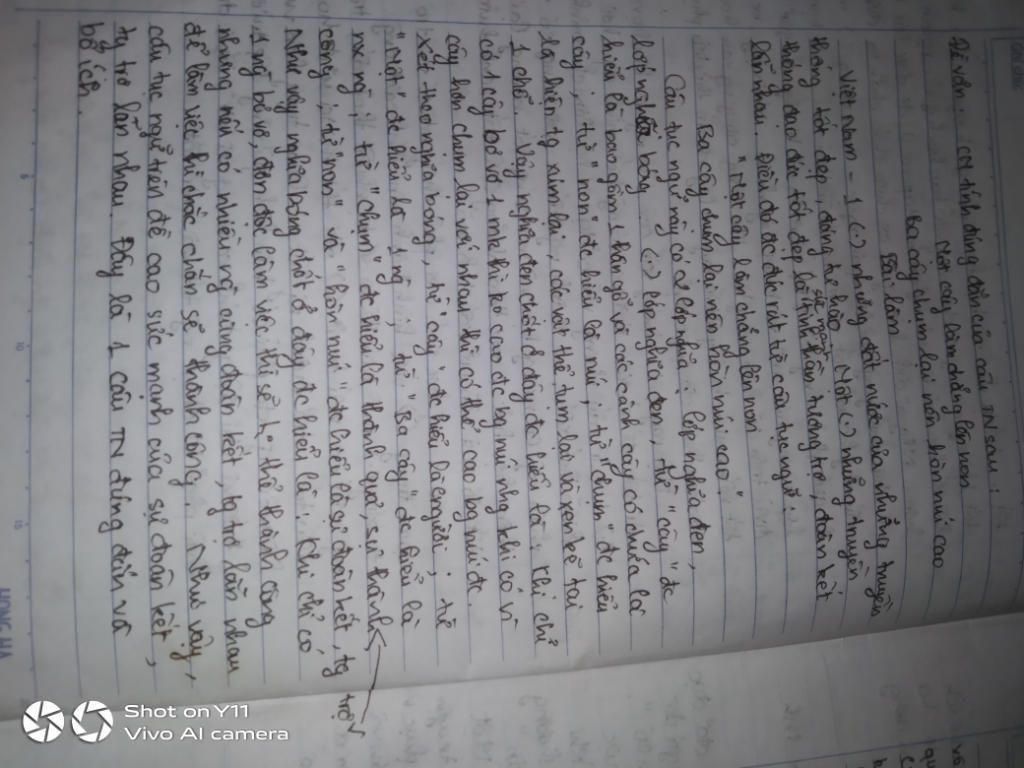 Đề văn: CM tính đúng đắn của câu TN sau:
Một cây làm chẳng lên non
Ba cây chụm lại nên hòn núi cao
Bài làm
Việt Nam - 1 (.) những đất nước của những truyền
thống tốt đẹp, đáng tự hào. Một (.) những truyền
thống đạo đức tốt đẹp là tinh thần tương trợ, đoàn kết
lẫn nhau. Điều đó đc đúc rút từ câu tục ngữ:
"Một cây làm chẳng lên non
Ba cây chụm lại nên hòn núi cao"
Câu tục ngữ này có 2 lớp nghĩa: lớp nghĩa đen,
lớp nghĩa bóng. (.) lớp nghĩa đen, từ "cây" đc
hiểu là bao gồm 1 thân gỗ và các cành cây có chứa lá
cây; từ "non" đc hiểu là núi; từ "chụm" đc hiểu
là hiện tg túm lại, các vật thể túm lại và xen kẽ tại
1 chỗ. Vậy nghĩa đen chốt ở đây đc hiểu là: Khi chỉ
có 1 cây bơ vơ 1 mk thì ko cao đc bg núi nhg khi có
cây hơn chụm lại với nhau thì có thể cao bg núi đc.
Xét theo nghĩa bóng, từ "cây" đc hiểu là con người; từ
"Một" đc hiểu là 1 ng; từ "Ba cây" đc hiểu là
nx ng; từ "chụm" đc hiểu là thành quả, sự thành
công; từ "non" và "hòn núi" đc hiểu là sự đoàn kết, tg trợ
Như vậy nghĩa bóng chốt ở đây đc hiểu là: Khi chỉ có
1 ng bơ vơ, đơn độc làm việc thì sẽ ko thể thành công
nhưng nếu có nhiều ng cùng đoàn kết, tg trợ lẫn nhau
để làm việc thì chắc chắn sẽ thành công. Như vậy,
câu tục ngữ trên đề cao sức mạnh của sự đoàn kết,
tg trợ lẫn nhau. Đây là 1 câu TN đúng đắn và
bổ ích.
HONG HA
Shot on Y11
Vivo AI camera